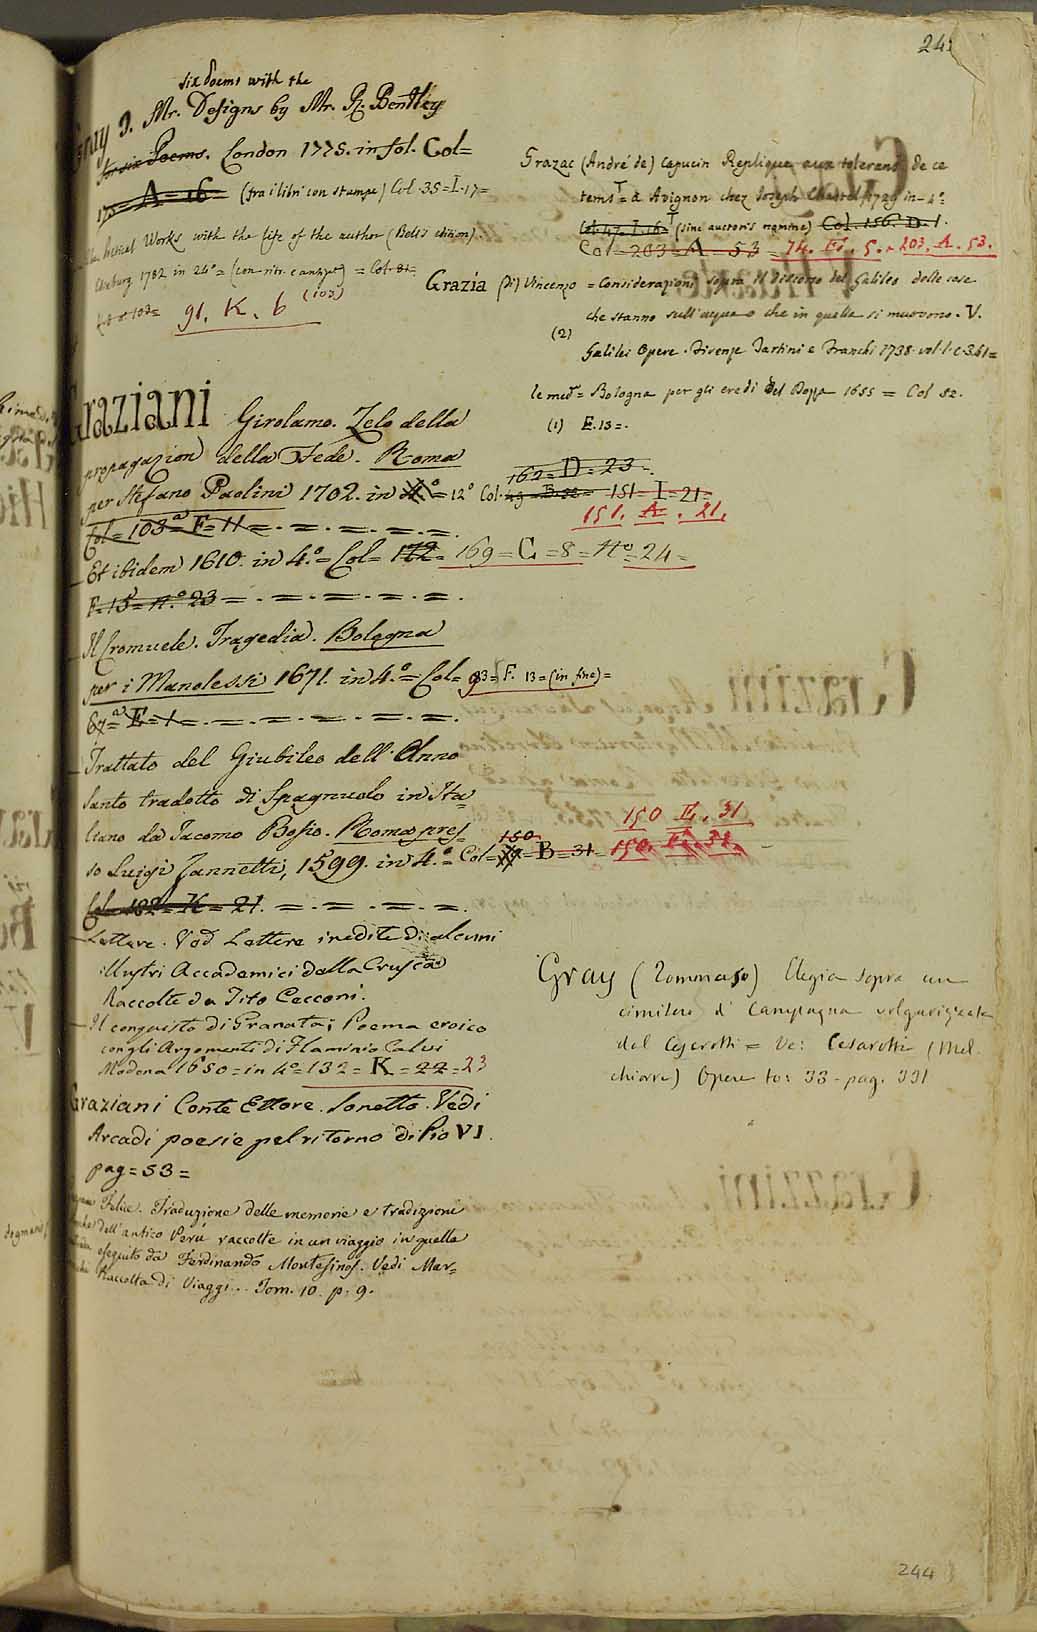 24
six Poems with the
Gray J. Mr. Designs by Mr. R. Bentley
for six Poems. London 1775. in fol. Col=
175=A=16 (fra i libri con stampe) Col. 35=I.17=
Works with the life of the author (Bell's edition).
1782 in 24°= = Col. 81=
91. K. 6 (103)
Graziani Girolamo. Zelo della
propagazion della Fede. Roma
per Stefano Paolini 1702. in 4°=12° Col. 49=B.32= 151=I=21=
162=D=23.
151. A. 21.
Col=103=F=11=.=.=.=.=.
Et ibidem 1610. in 4.°=Col=172=169=C=8=N°=24=
F=15=n.°23=.=.=.=.=.
Il Cromuele. Tragedia. Bologna
per i Manolessi 1671. in 4.°=Col=93=F.13=(in fine)=
67=E=1=.=.=.=.=.
Trattato del Giubileo dell'Anno
Santo tradotto di Spagnuolo in Ita=
liano da Jacomo Bosio. Roma pres=
150 E. 31
so Luigi Zannetti, 1599. in 4.°=Col= 150 =B=31= 150. E. 31.
Col=102=K=21.=.=.=.=.
Lettere. Ved Lettere inedite di alcuni
illustri Accademici della Crusca
Raccolte da Tito Cecconi.
Il conquisto di Granata; Poema eroico
con gli Argomenti di Flaminio Calvi
Modena 1650=in 4°=132=K=22=23
Graziani Conte Ettore. Sonetto. Vedi
Arcadi poesie pel ritorno di Pio VI.
pag=53=
Felice. Traduzione delle memorie e tradizioni
dell'antico Perù raccolte in un viaggio in quella
eseguito da Ferdinando Montesinos. Vedi Mar=
Raccolta di Viaggi.. Tom. 10. p. 9.
Grazac (André de) Capucin Replique aux tolerans de ce
tems = à Avignon chez Joseph Chastel 1729 in-4°=
Col. 47.I.16= (sine auctoris nomine) Col. 156. D.1.
Col=203=A=53=74. E. 5.=203. A. 53.
Grazia (Di) Vincenzo = Considerazioni sopra il discorso del Galileo delle cose
che stanno sull'acqua o che in quella si muovono. V.
(2)
Galilei Opere. Firenze Tartini e Franchi 1738. vol. 1. c. 361=
le med.e= Bologna per gli eredi del Dozza 1655 = Col 82.
(1) E.13=.
Gray (Tommaso) Elegia sopra un
cimitero di Campagna volgarizzata
dal Cesarotti = Ve: Cesarotti (Mel
chiorre) Opere to: 33-pag. 331
244